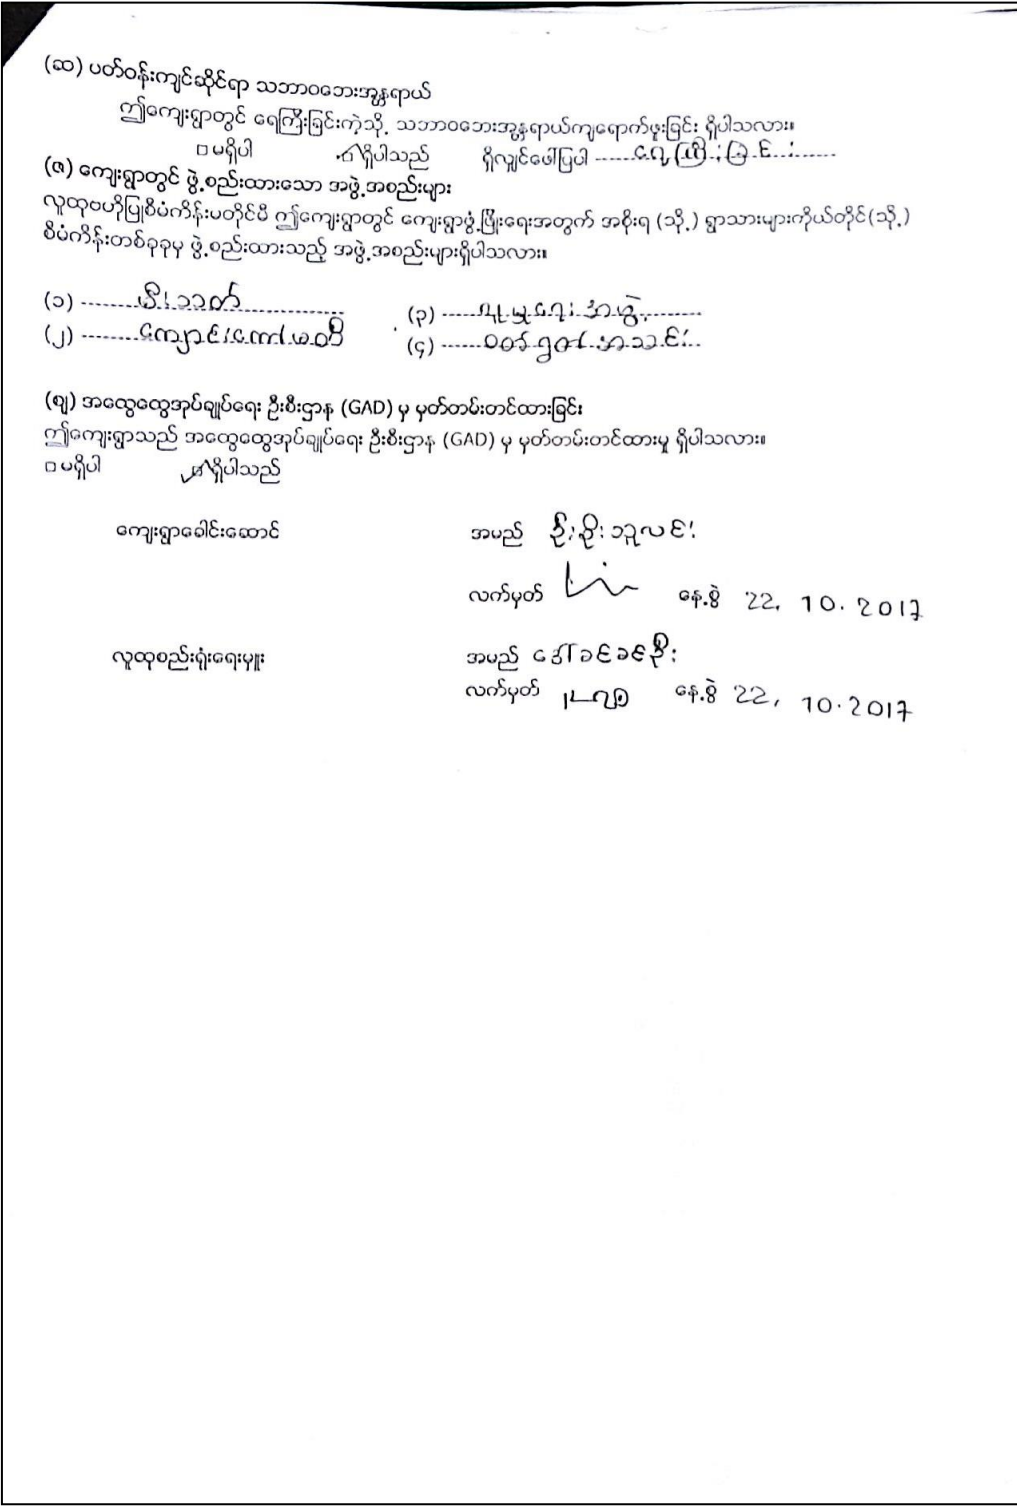 (ဆ) ပတ်ဝန်းကျင်ဆိုင်ရာ သဘာဝဘေးအန္တရာယ်
ဤကျေးရွာတွင် ရေကြီးခြင်းကဲ့သို့ သဘာဝဘေးအန္တရာယ်ကျရောက်ဖူးခြင်း ရှိပါသလား။
□ မရှိပါ ☑ ရှိပါသည် ရှိလျှင်ဖေါ်ပြပါ ----- ရေကြီးခြင်း -----
(ဇ) ကျေးရွာတွင် ဖွဲ့စည်းထားသော အဖွဲ့အစည်းများ
လူထုဗဟိုပြုစီမံကိန်းမတိုင်မီ ဤကျေးရွာတွင် ကျေးရွာဖွံ့ဖြိုးရေးအတွက် အစိုးရ (သို့) ရွာသားများကိုယ်တိုင်(သို့)
စီမံကိန်းတစ်ခုခုမှ ဖွဲ့စည်းထားသည့် အဖွဲ့အစည်းများရှိပါသလား။
(၁) -------- မီးသတ် -------- (၃) ----- ရပ်မှုရေးအဖွဲ့ -----
(၂) -------- ကျောင်းကော်မတီ (၄) ------ ဝတ်ရွတ်အသင်း
(ဈ) အထွေထွေအုပ်ချုပ်ရေး ဦးစီးဌာန (GAD) မှ မှတ်တမ်းတင်ထားခြင်း
ဤကျေးရွာသည် အထွေထွေအုပ်ချုပ်ရေး ဦးစီးဌာန (GAD) မှ မှတ်တမ်းတင်ထားမှု ရှိပါသလား။
□ မရှိပါ ☑ ရှိပါသည်
ကျေးရွာခေါင်းဆောင် အမည် ဦးစိုးသူလင်း
လက်မှတ် နေ့စွဲ 22. 10. 2017
လူထုစည်းရုံးရေးမှူး အမည် ဒေါ်ခင်ခင်ဦး
လက်မှတ် နေ့စွဲ 22. 10. 2017